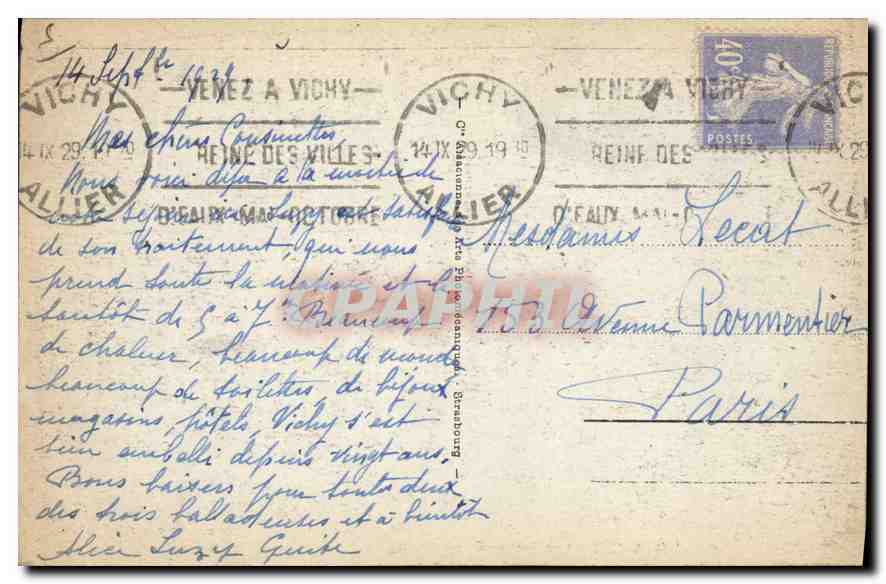 14 Septbre 1929
VICHY
ALLIER
14 IX 29. 19
VENEZ A VICHY
REINE DES VILLES
D'EAUX. MAI-OCTOBRE
VICHY
ALLIER
14 IX 29. 19 30
VENEZ A VICHY
REINE DES VILLES
D'EAUX. MAI-
VICHY
ALLIER
IX 29
REPUBLIQUE FRANCAISE
40c
POSTES
Mes chères Cousinettes,
Nous voici déjà à la moitié de
notre séjour. Suzy est satisfaite
de son traitement, qui nous
prend toute la matinée et le
tantôt de 5 à 7. Beaucoup
de chaleur, beaucoup de monde
beaucoup de toilettes, de bijoux
magasins, hôtels, Vichy s'est
bien embelli depuis vingt ans.
Bons baisers pour toutes deux
des trois et à bientôt
Alice Suzy Guite
Cie Alsacienne des Arts Photomécaniques, Strasbourg
CPAPHIL
Mesdames Lecat
153 Avenue Parmentier
Paris